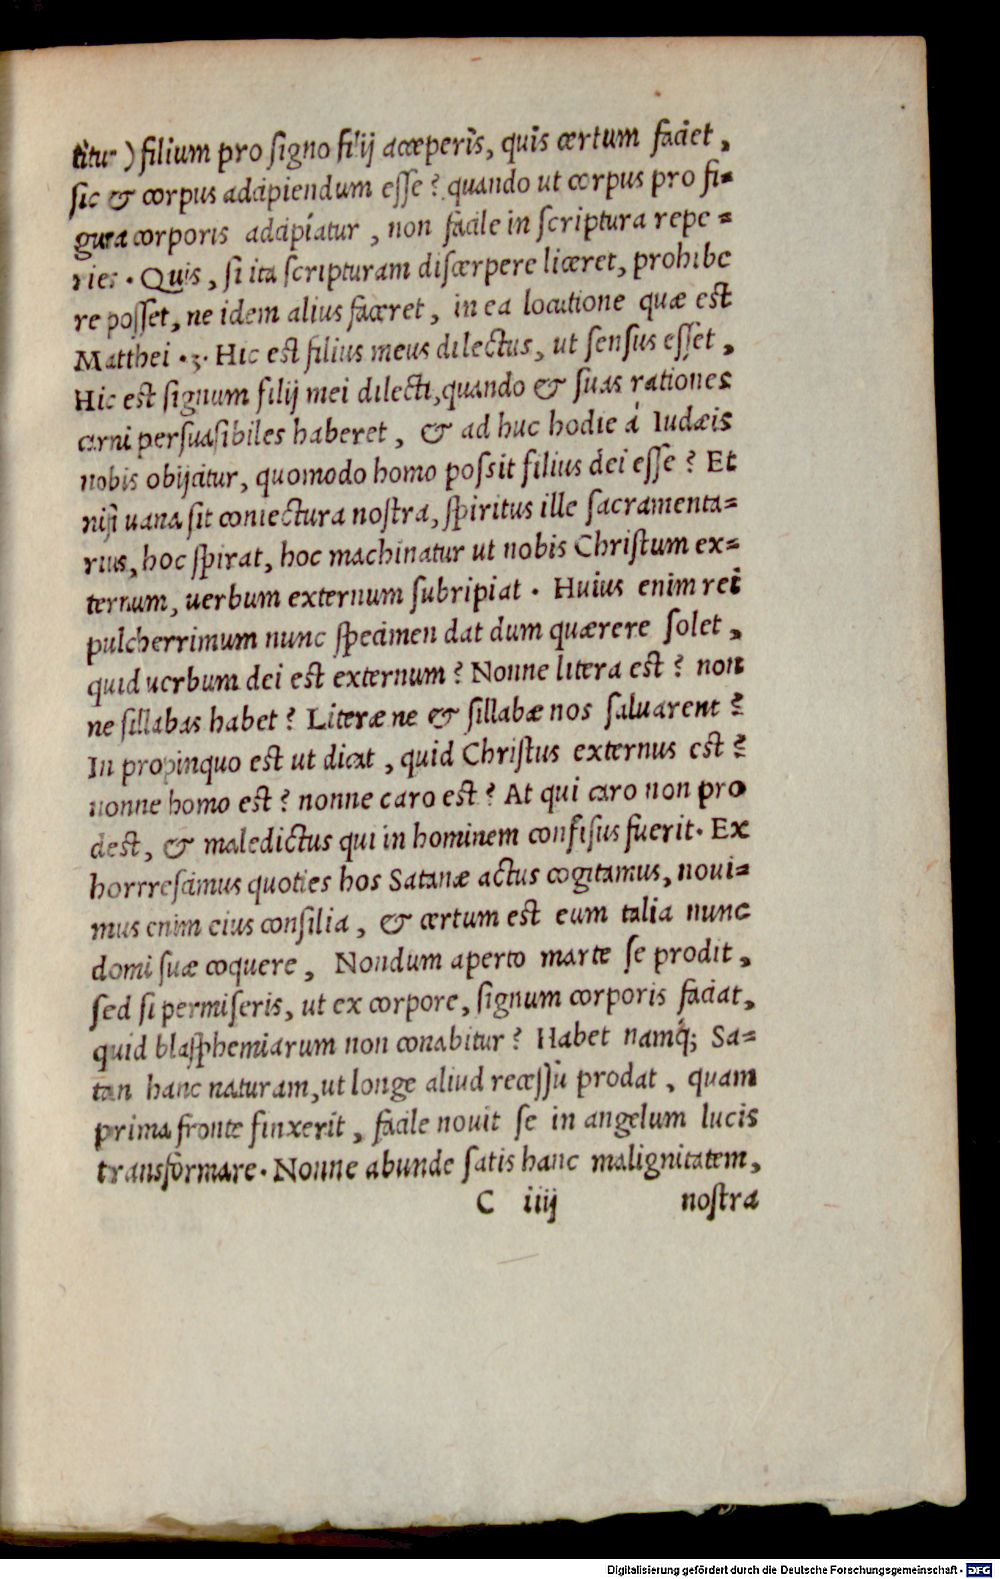 titur) filium pro signo filij acceperis, quis certum faciet,
sic & corpus accipiendum esse? quando ut corpus pro fi=
gura corporis accipiatur, non facile in scriptura repe=
ries. Quis, si ita scripturam discerpere liceret, prohibe
re posset, ne idem alius faceret, in ea locutione quæ est
Matthei .3. Hic est filius meus dilectus, ut sensus esset,
Hic est signum filij mei dilecti, quando & suas rationes
carni persuasibiles haberet, & ad huc hodie á Iudæis
nobis obijcitur, quomodo homo possit filius dei esse? Et
nisi uana sit coniectura nostra, spiritus ille sacramenta=
rius, hoc spirat, hoc machinatur ut nobis Christum ex=
ternum, uerbum externum subripiat. Huius enim rei
pulcherrimum nunc specimen dat dum quærere solet,
quid uerbum dei est externum? Nonne litera est? non
ne sillabas habet? Literæ ne & sillabæ nos saluarent?
In propinquo est ut dicat, quid Christus externus est?
nonne homo est? nonne caro est? At qui caro non pro
dest, & maledictus qui in hominem confisus fuerit. Ex
horrrescimus quoties hos Satanæ actus cogitamus, noui=
mus enim eius consilia, & certum est eum talia nunc
domi suæ coquere, Nondum aperto marte se prodit,
sed si permiseris, ut ex corpore, signum corporis faciat,
quid blasphemiarum non conabitur? Habet namq́; Sa=
tan hanc naturam, ut longe aliud recessu prodat, quam
prima fronte finxerit, facile nouit se in angelum lucis
transformare. Nonne abunde satis hanc malignitatem,
C iiij nostra
Digitalisierung gefördert durch die Deutsche Forschungsgemeinschaft - DFG